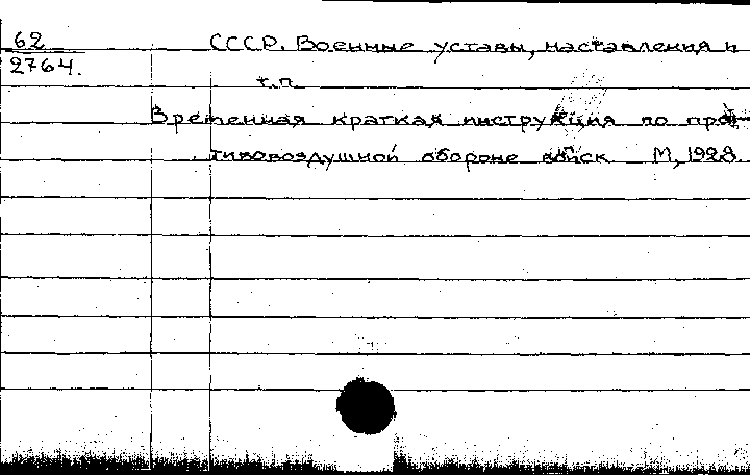 62
2764.
СССР. Военные уставы, наставления и
т.п.
Временная краткая инструкция по про-
тивовоздушной обороне войск М., 1928.